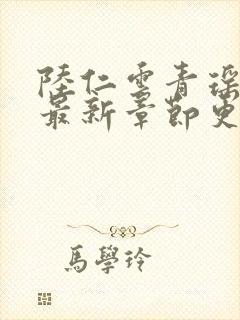 陸仁雲青瑶
最新章節更
馬學玲